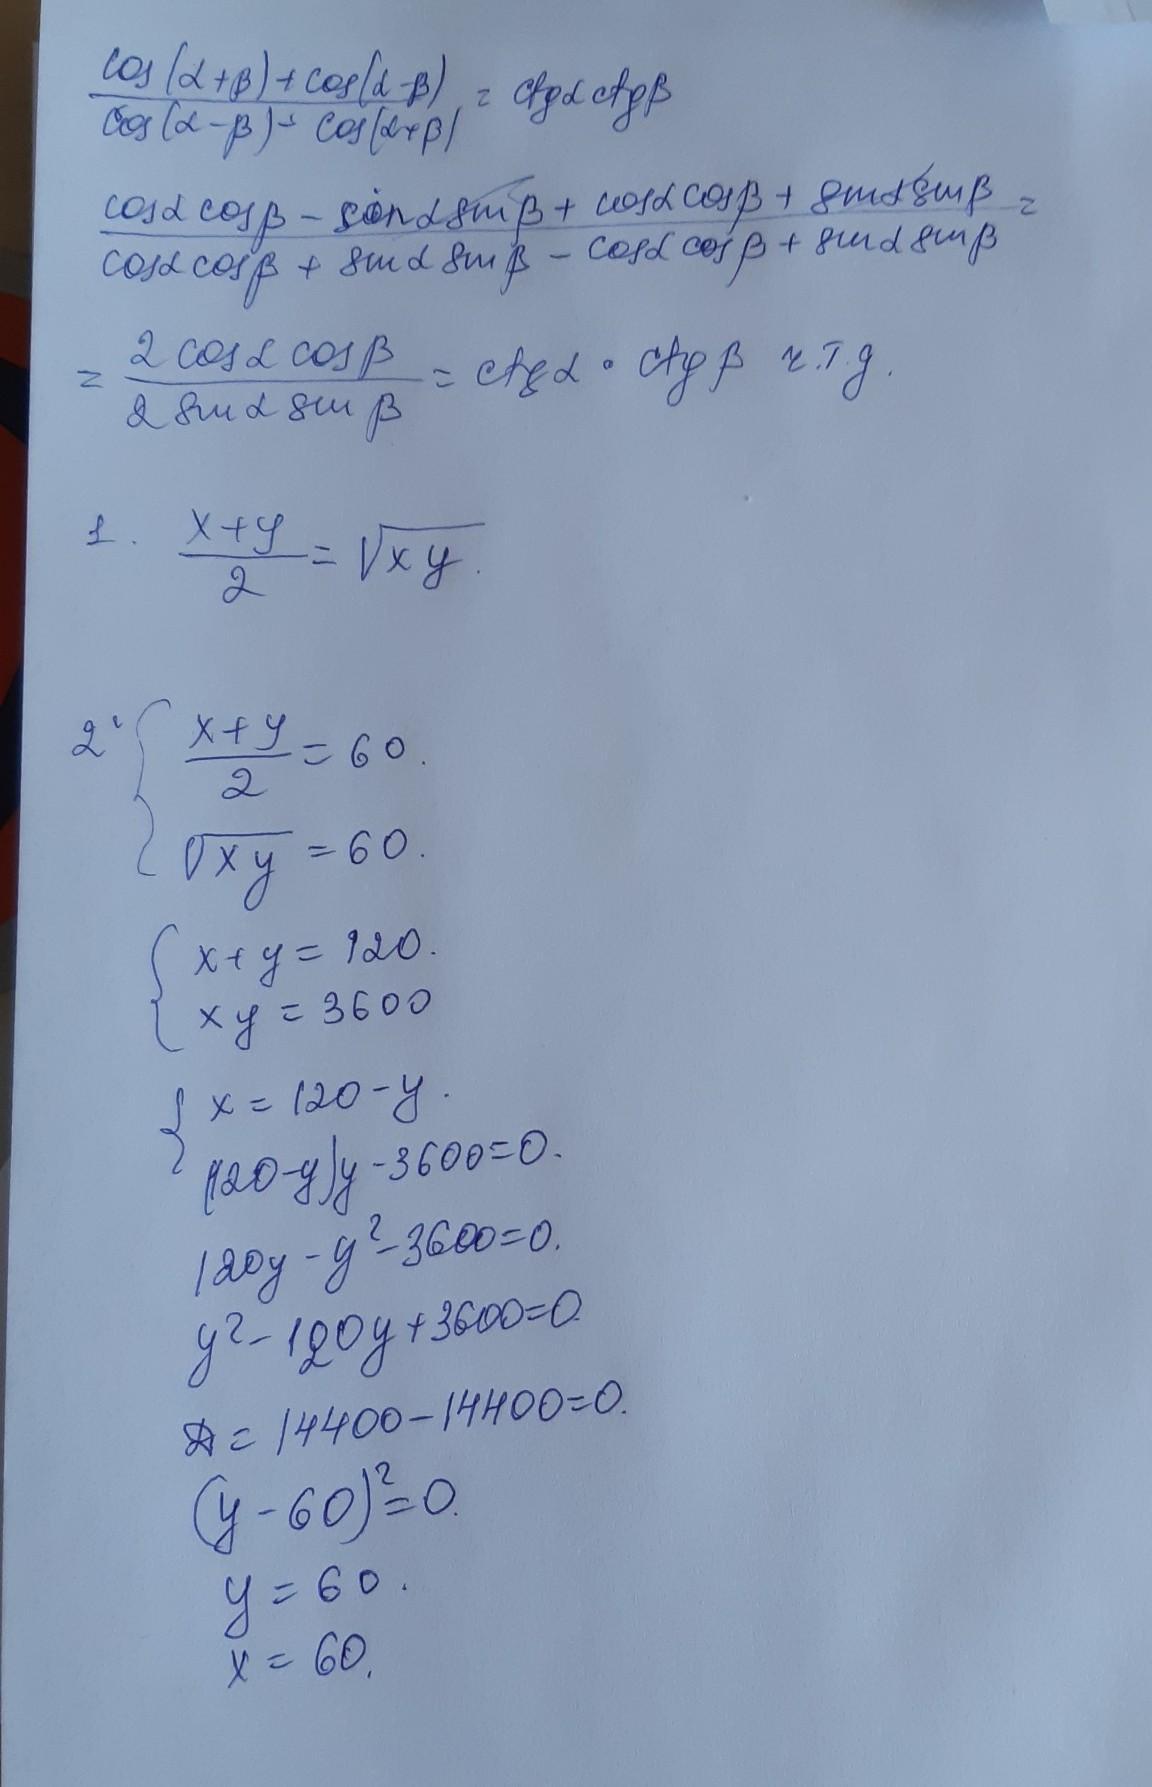 cos(α+β)+cos(α-β)
cos(α-β)- cos(α+β) = ctgα ctgβ
cosα cosβ - sinα sinβ + cosα cosβ + sinα sinβ =
cosα cosβ + sinα sinβ - cosα cosβ + sinα sinβ
= 2 cosα cosβ
2 sinα sinβ = ctgα · ctgβ ч.т.д.
1. x+y
2 = √xy.
2. { x+y
2 = 60.
√xy = 60.
{ x+y = 120.
xy = 3600
{ x = 120-y.
(120-y)y-3600=0.
120y-y²-3600=0.
y²-120y+3600=0.
D = 14400-14400=0.
(y-60)²=0.
y = 60.
x = 60.